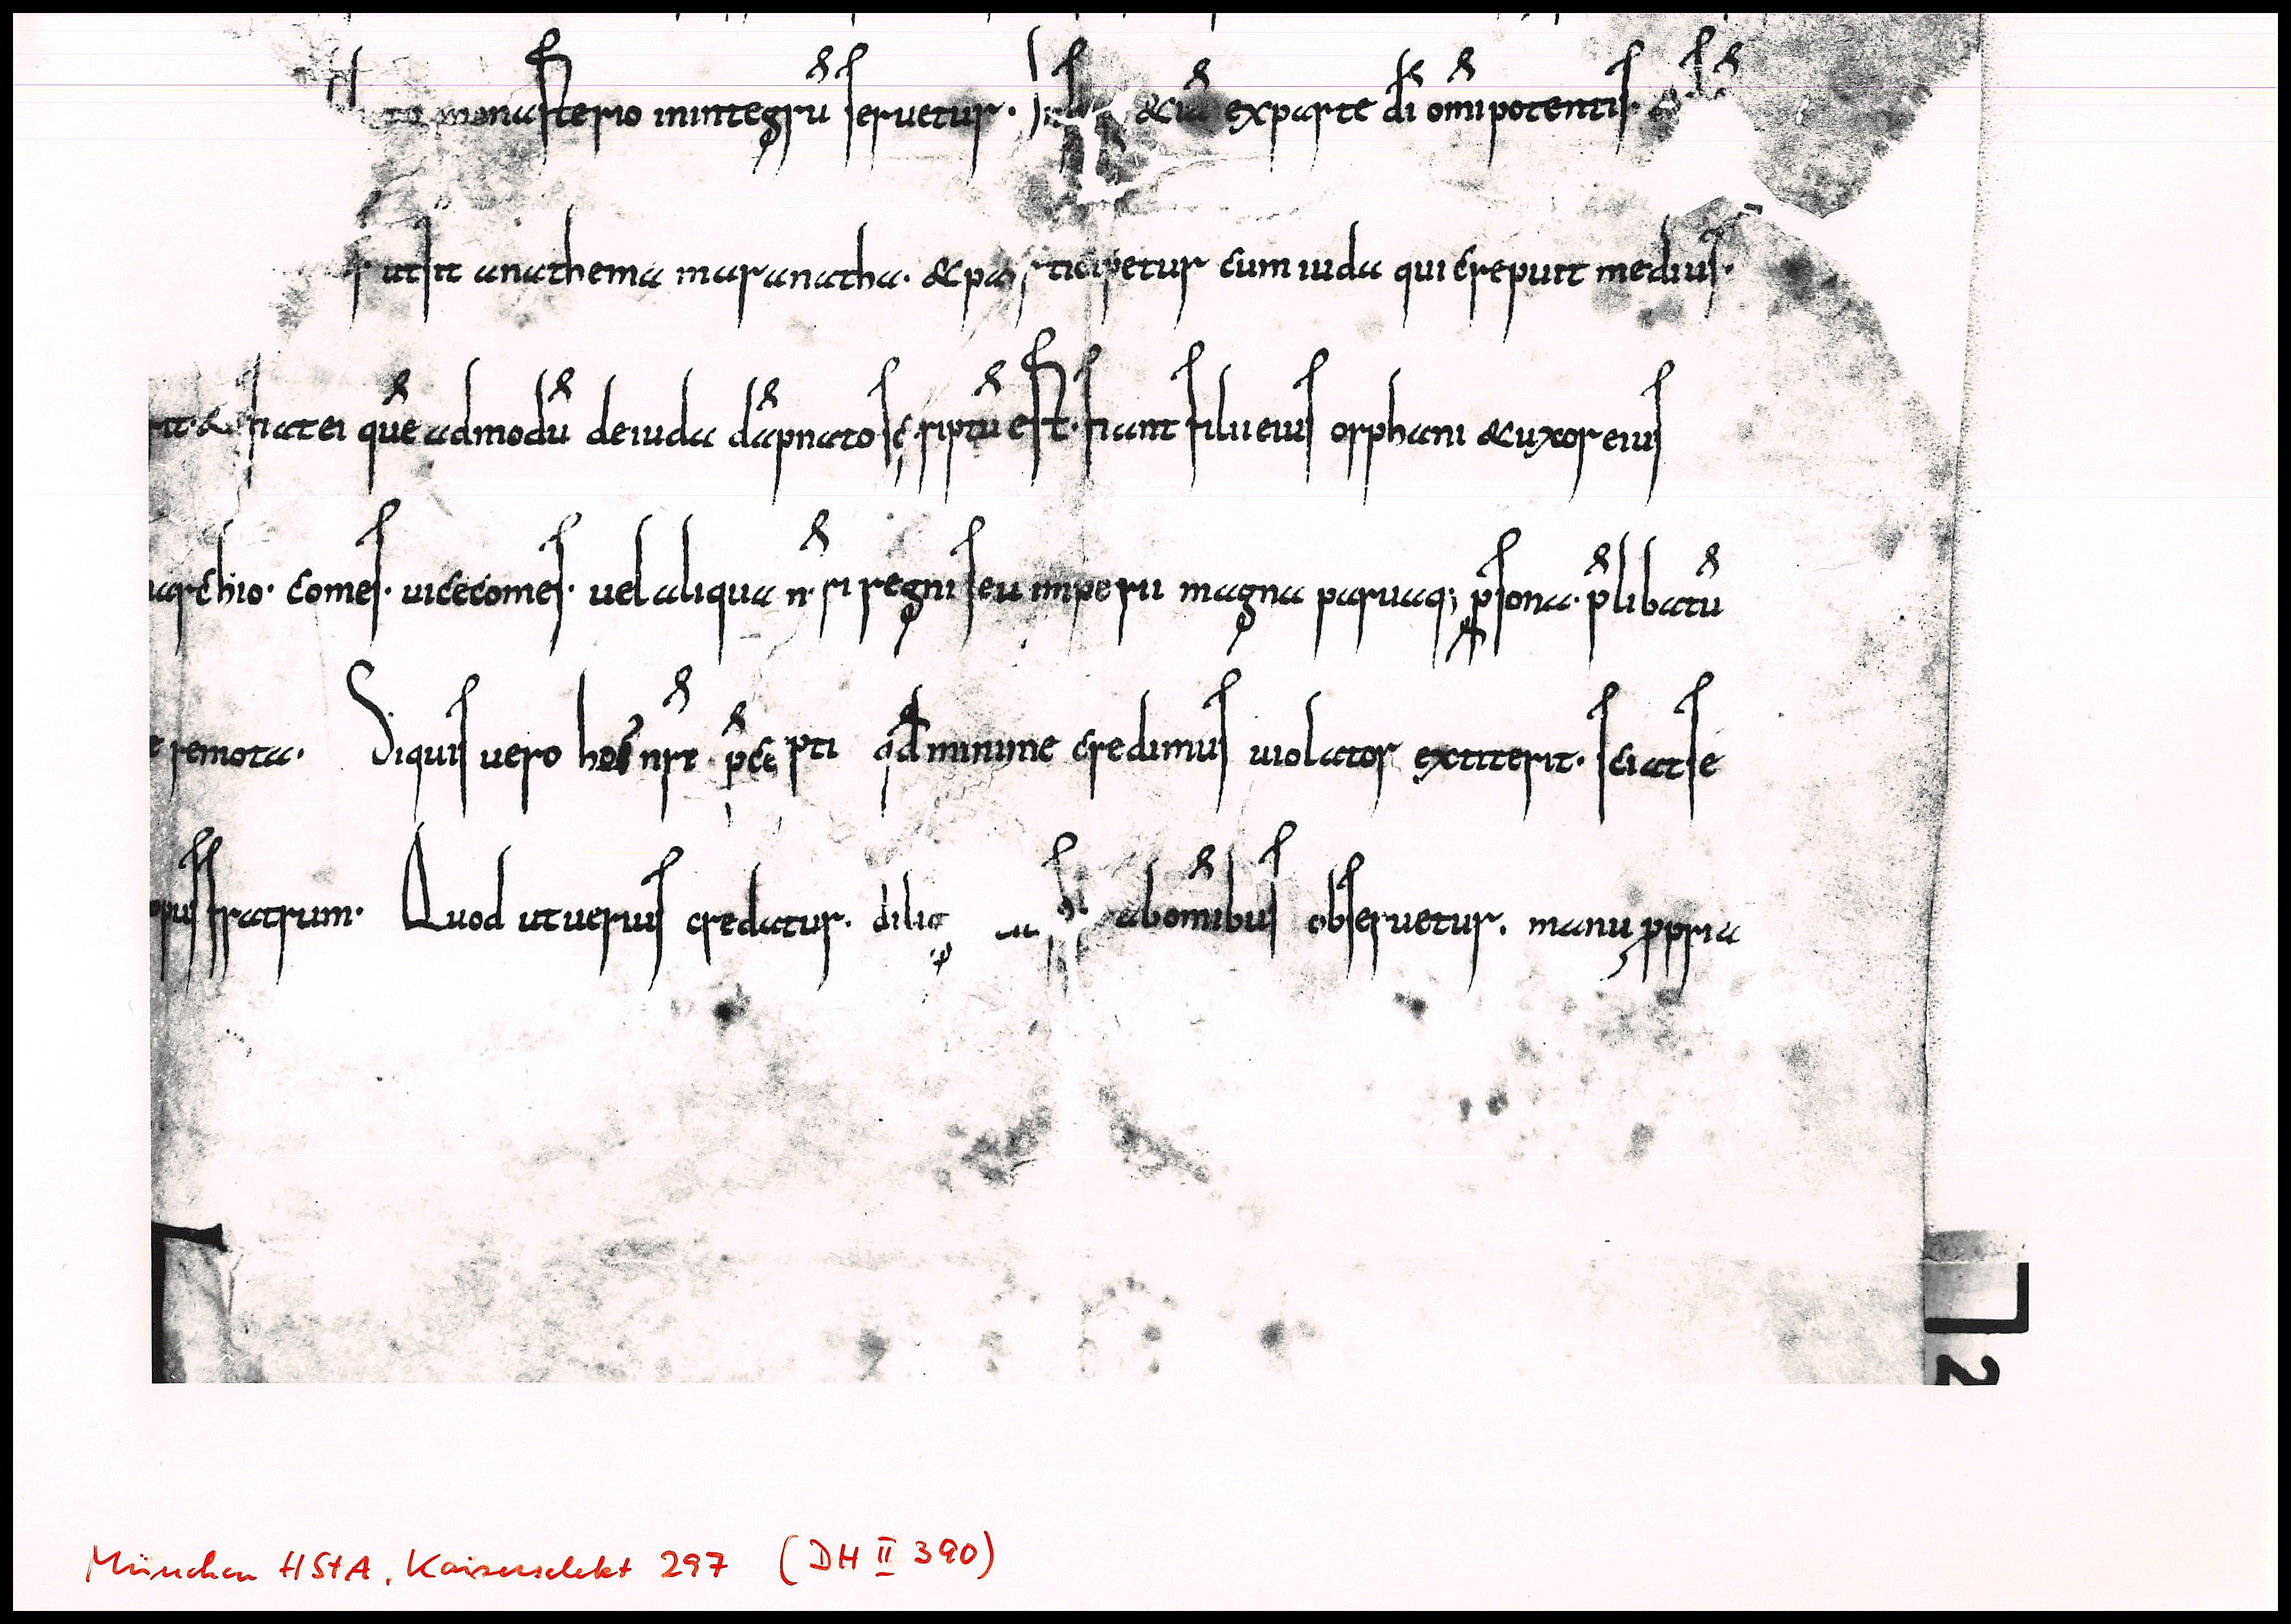 to monasterio inintegrū seruetur. &iā exparte dī om̄ipotentis.
ut sit anathema maranatha. &participetur cum iuda qui crepuit medius.
fiatei quē admodū deiuda dāpnato scriptū est. fiant filii eius orphani &uxor eius
archio. comes. uicecomes. uel aliqua nr̄i regni seu imperii magna paruaq; psona. p̄libatū
remota. Siquis vero hui nr̄i p̄cepti qđ minime credimus uiolator extiterit. sciat se
opus fratrum. Quod ut uerius credatur. dilig ab om̄ibus obseruetur. manu ppria
2
München HStA, Kaiserselekt 297 (DH II 390)